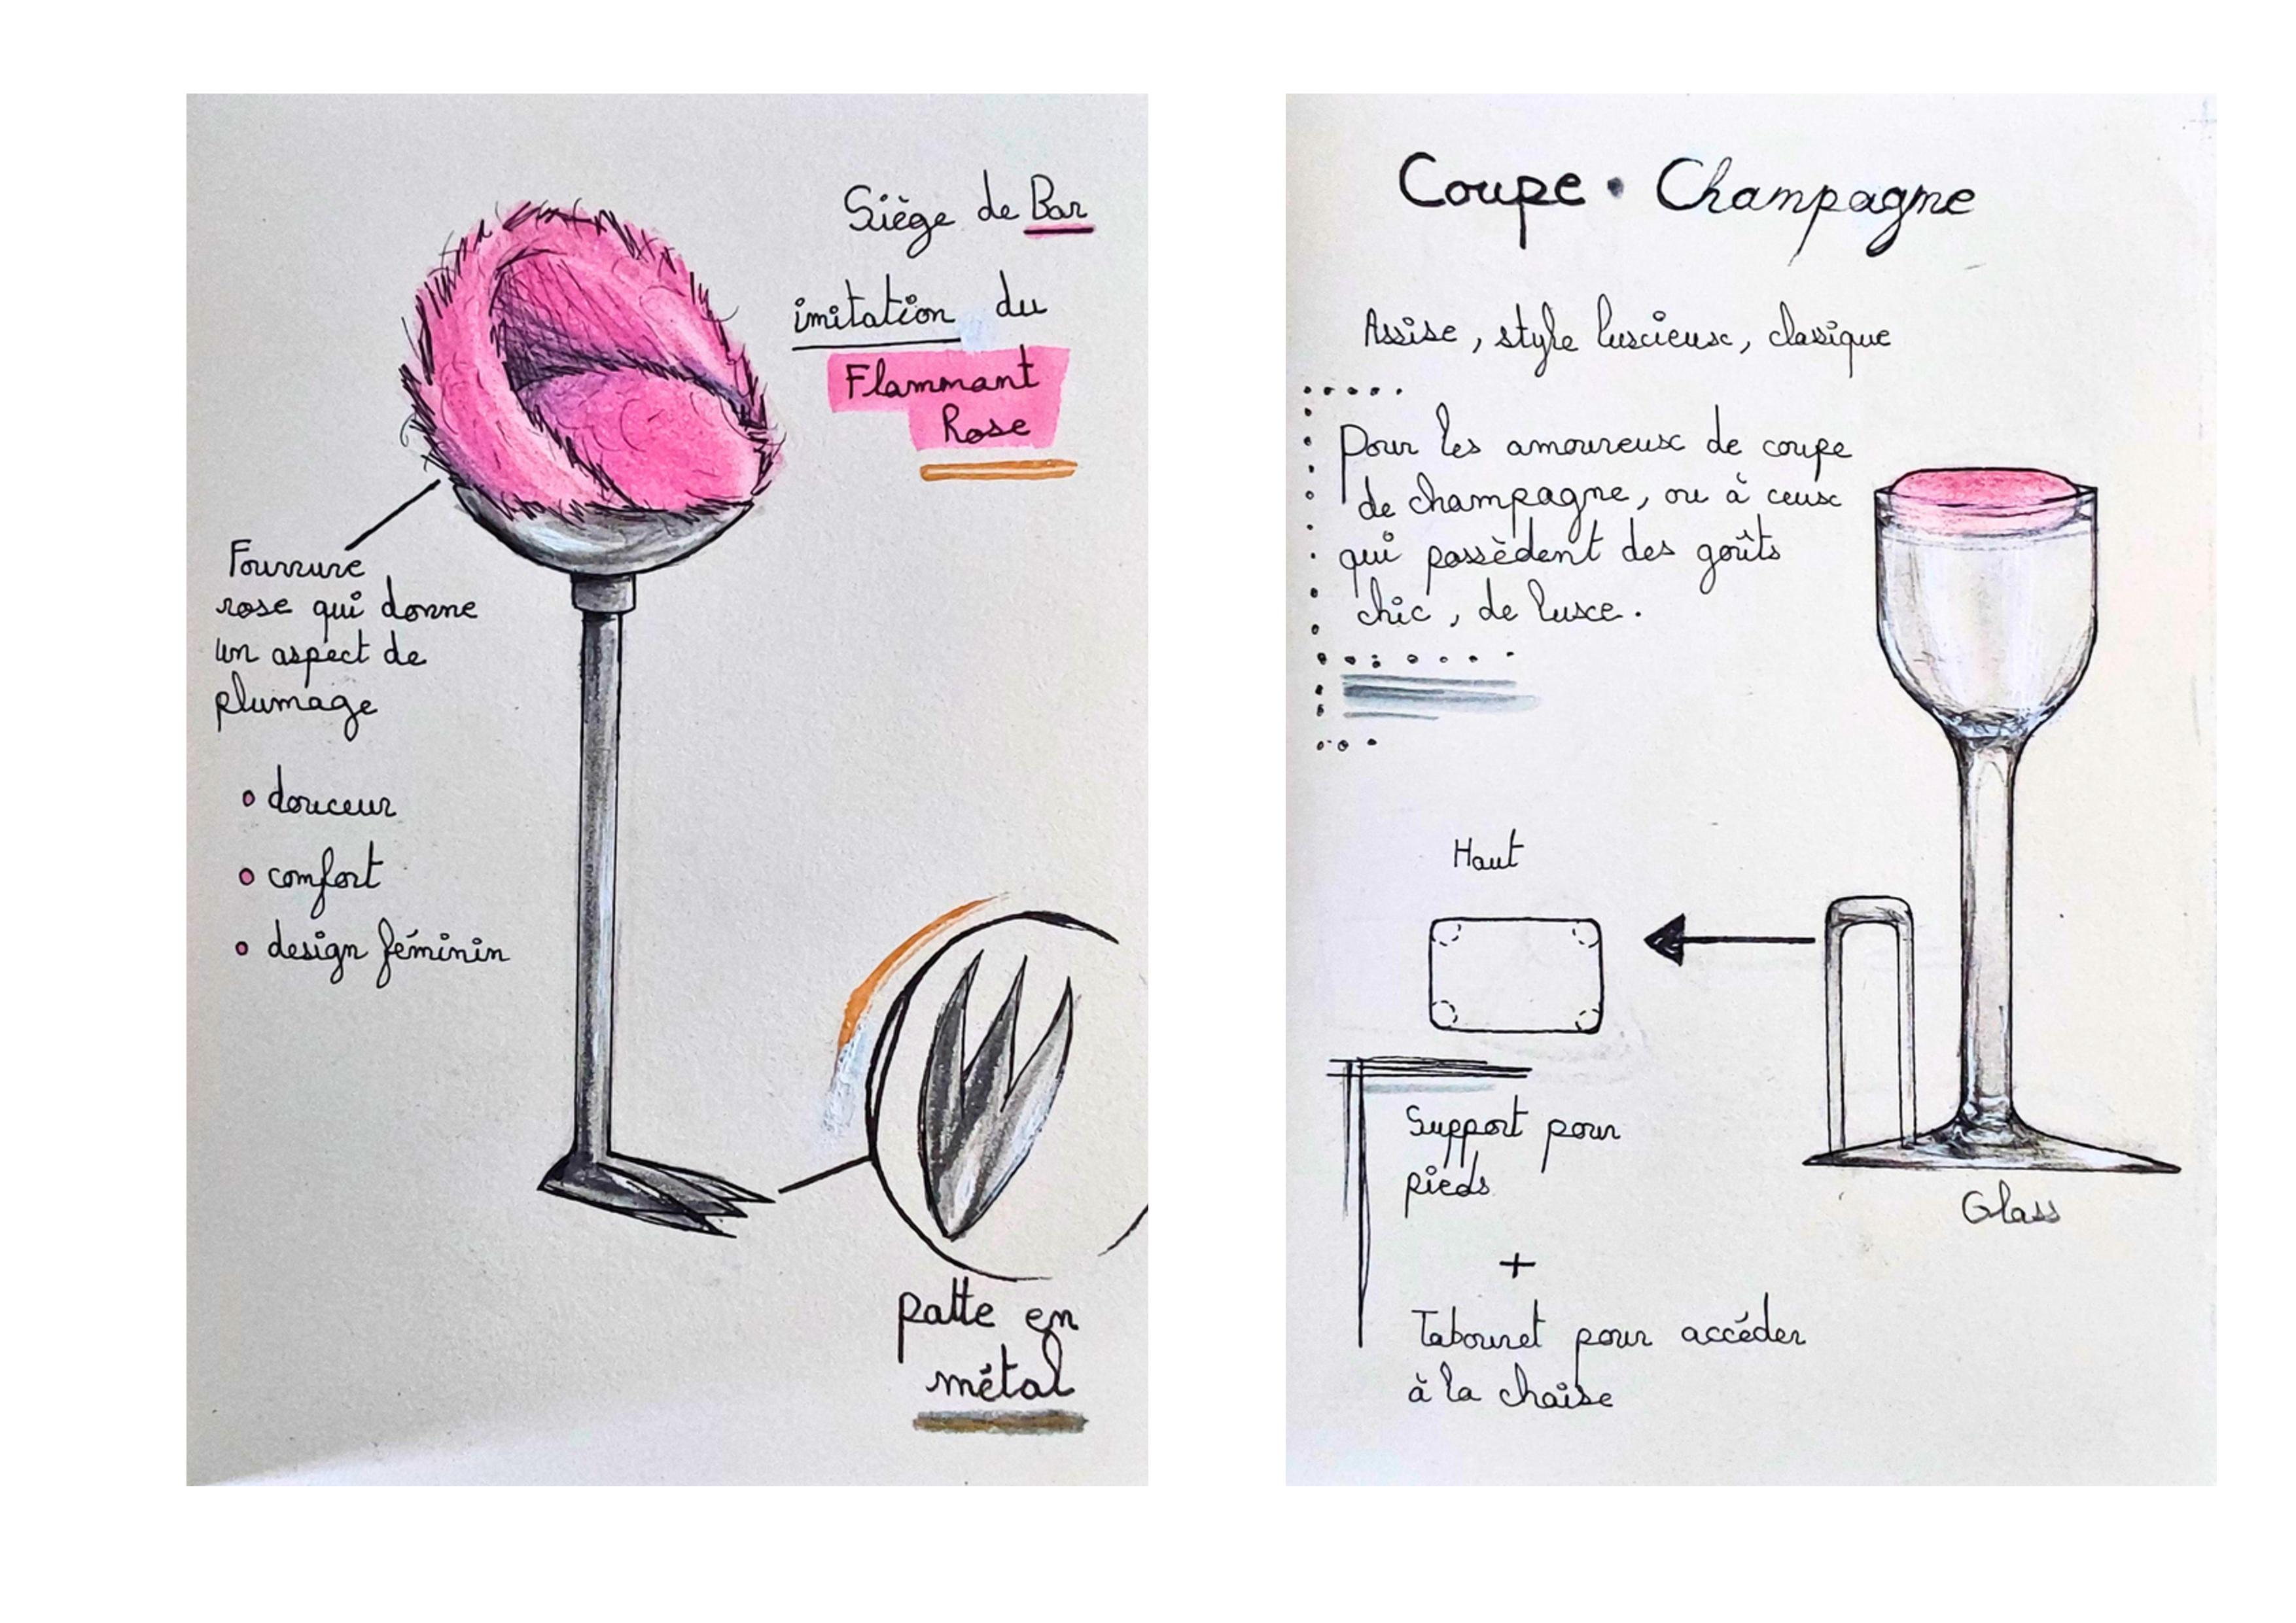 Siège de Bar
imitation du
Flammant
Rose
Fourrure
rose qui donne
un aspect de
plumage
douceur
comfort
design féminin
patte en
métal
Coupe • Champagne
Assise, style luxcieux, clasique
Pour les amoureux de coupe
de champagne, ou à ceux
qui possèdent des goûts
chic, de luxe.
Haut
Support pour
pieds
+
Tabouret pour accéder
à la chaise
Glass